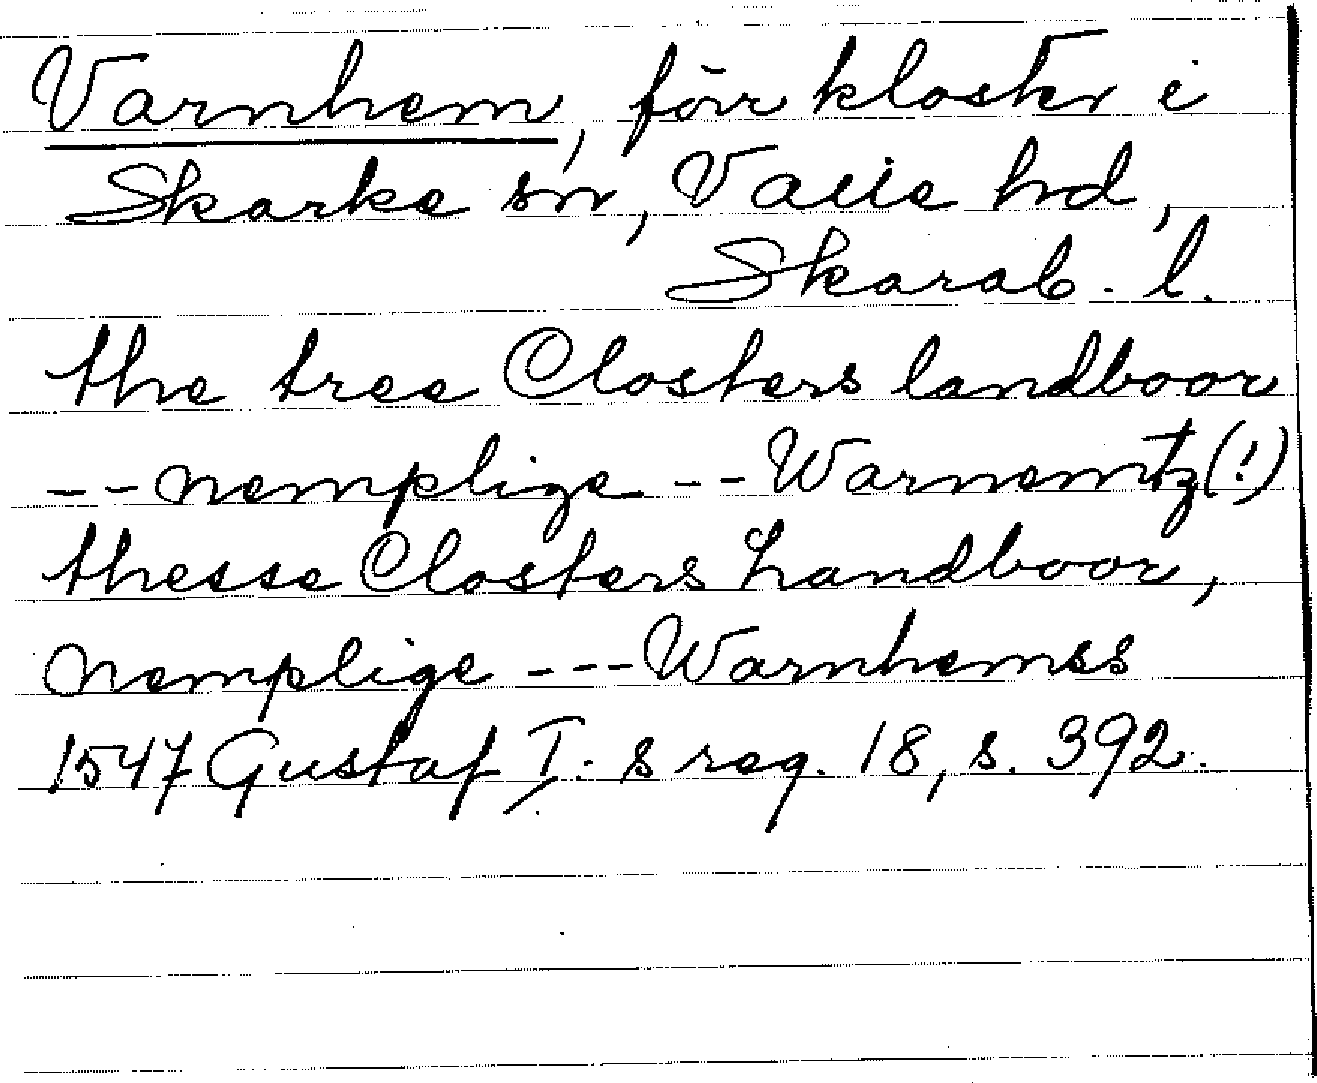 Varnhem, förr kloster i
Skarke sn, Valle hd,
Skarab. l.
the tree Closters landboor
-- nemplige -- Warnemtz (!)
thesse Closters Landboor,
Nemplige --- Warnhemss
1547 Gustaf I:s reg. 18, s. 392.